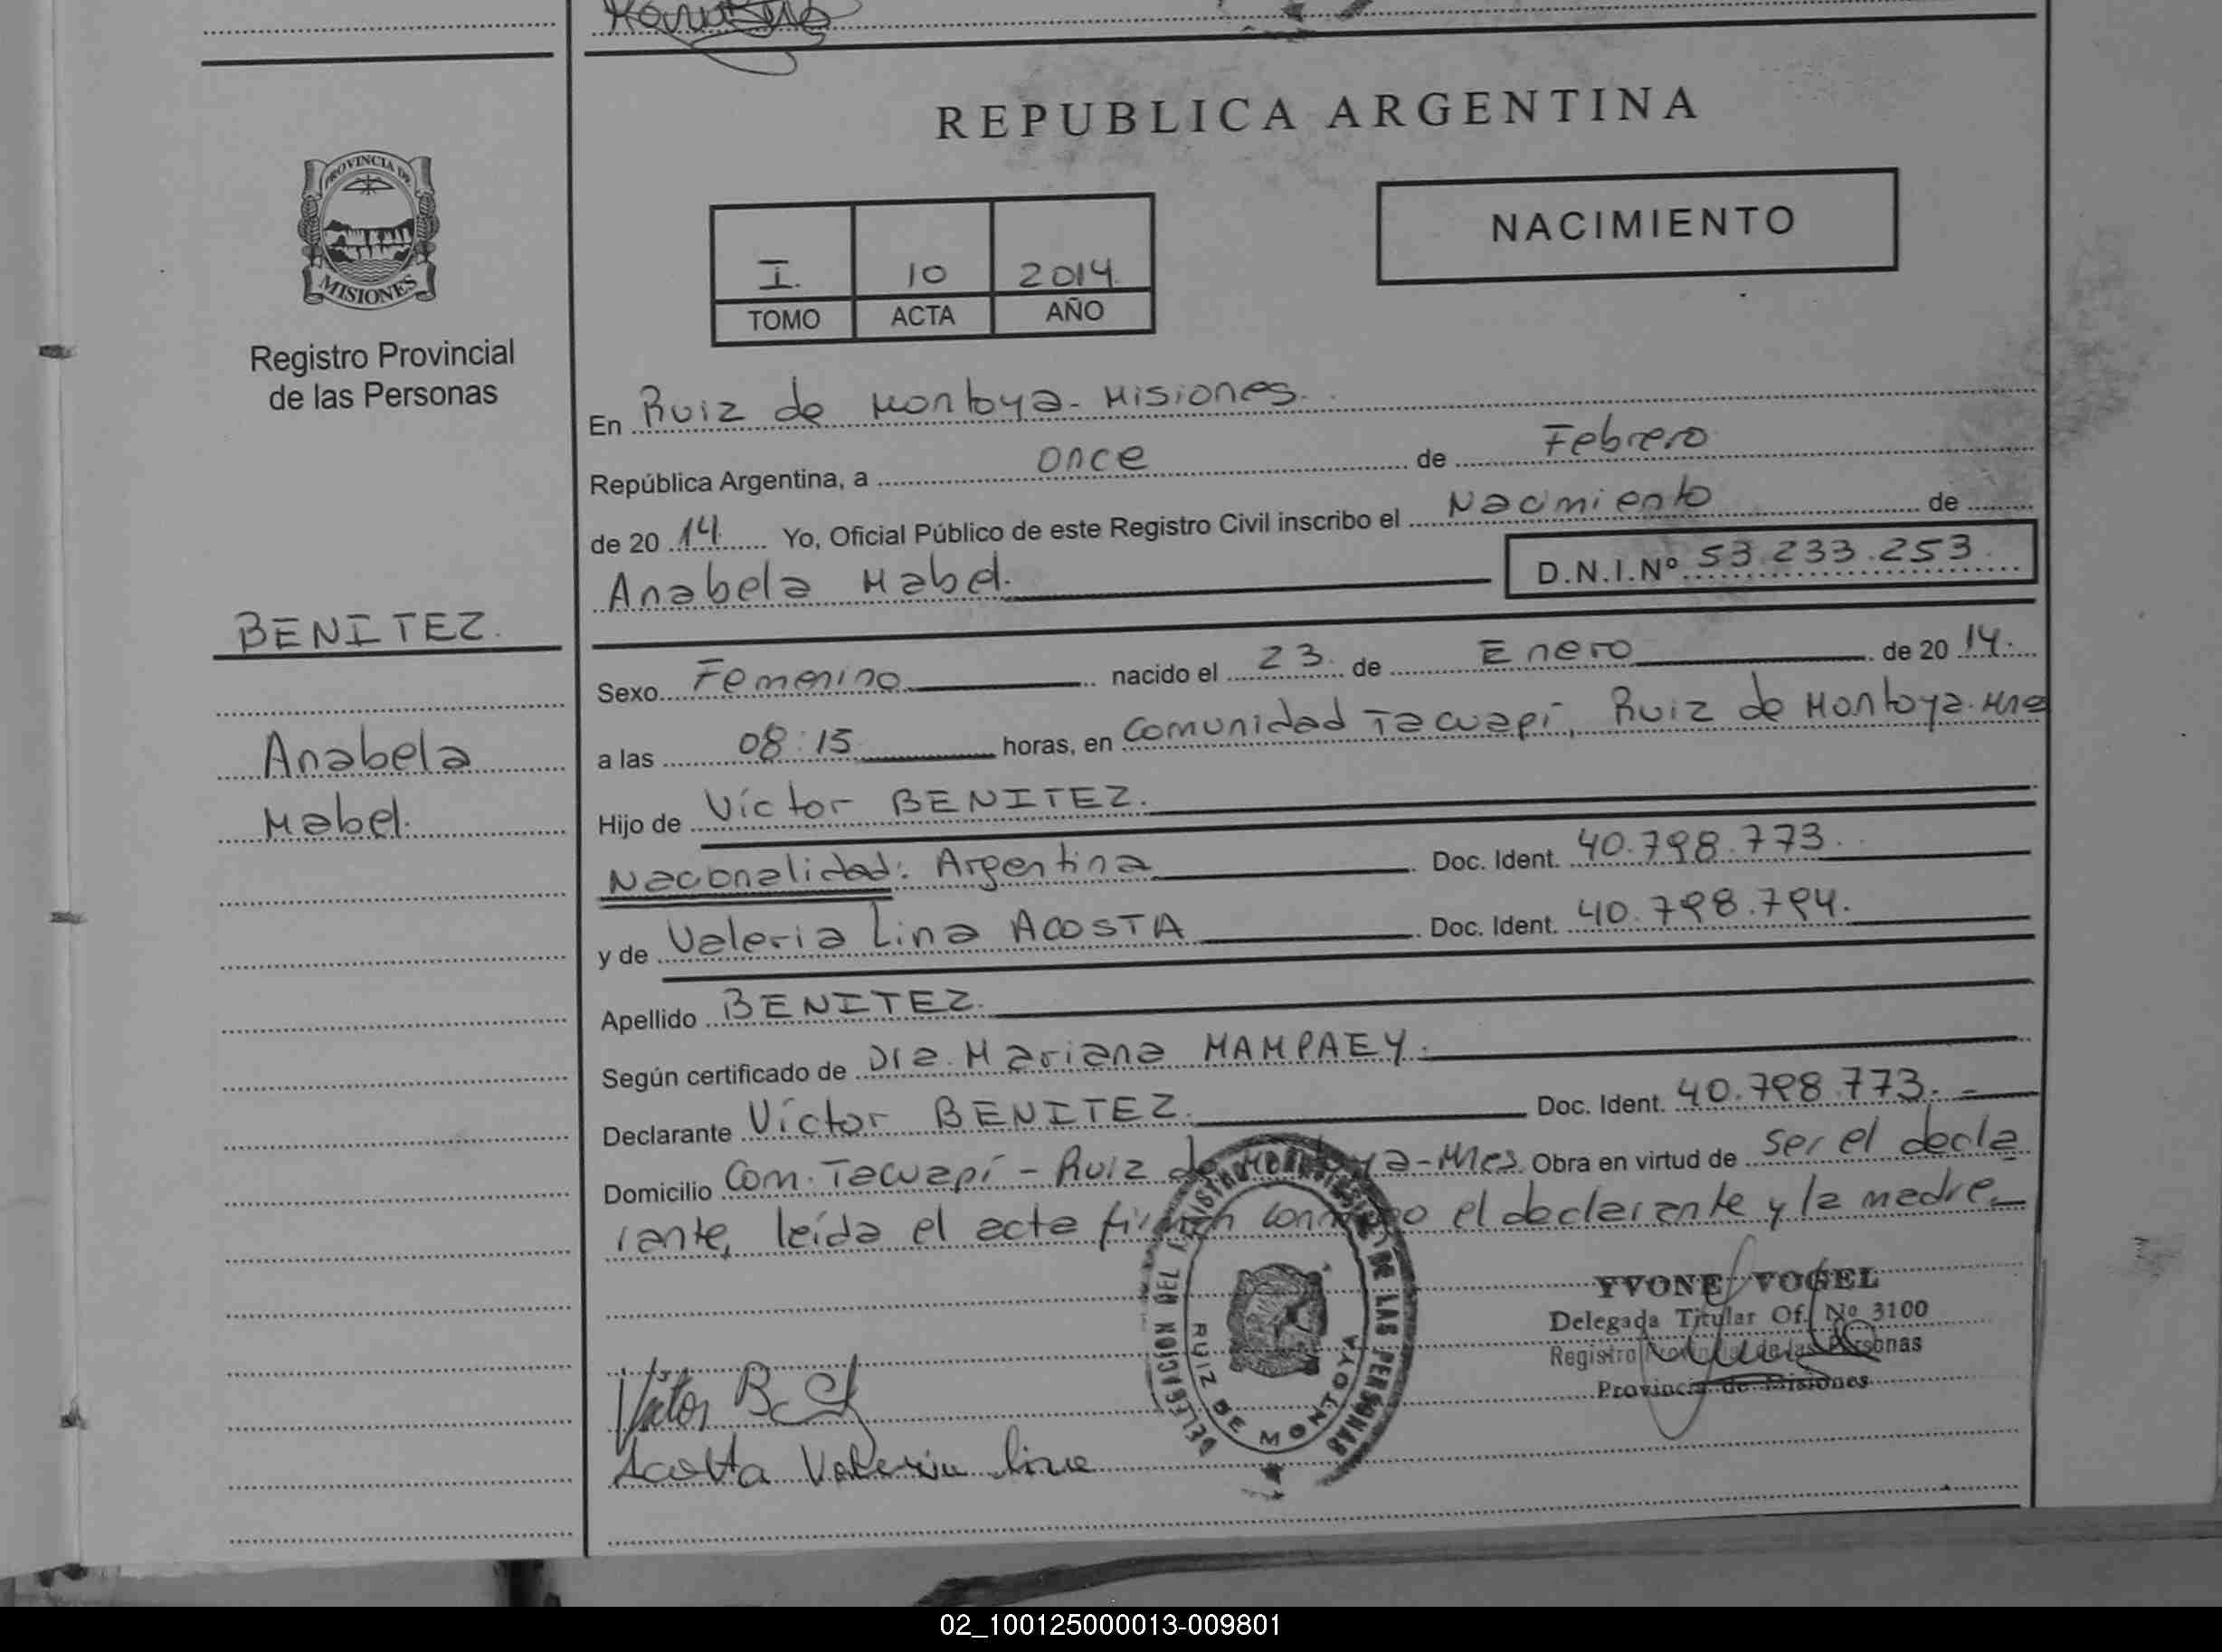 REPUBLICA ARGENTINA
PROVINCIA DE
MISIONES
Registro Provincial
de las Personas
I. 10 2014.
TOMO ACTA AÑO
NACIMIENTO
En Ruiz de Montoya - Misiones.
República Argentina, a once de Febrero
de 20 14. Yo, Oficial Público de este Registro Civil inscribo el Nacimiento de
Anabela Mabel. D.N.I.Nº 53.233.253.
BENITEZ.
Anabela
Mabel.
Sexo Femenino nacido el 23. de Enero de 20 14.
a las 08:15 horas, en Comunidad Tacuapí, Ruiz de Montoya. Mnes
Hijo de Víctor BENITEZ.
Nacionalidad: Argentina Doc. Ident. 40.798.773.
y de Valeria Lina ACOSTA Doc. Ident. 40.798.794.
Apellido BENITEZ.
Según certificado de Dra. Mariana MAMPAEY.
Declarante Víctor BENITEZ. Doc. Ident. 40.798.773. -
Domicilio Com. Tacuapí - Ruiz de Montoya - Mnes. Obra en virtud de ser el decla
rante, leída el acta firman conmigo el declarante y la madre.
YVONE VOGEL
Delegada Titular Of. Nº 3100
Registro Provincial de las Personas
Provincia de Misiones
DELEGACION DEL REGISTRO PROVINCIAL DE LAS PERSONAS
RUIZ DE MONTOYA
Acosta Valeria Lina
02_100125000013-009801